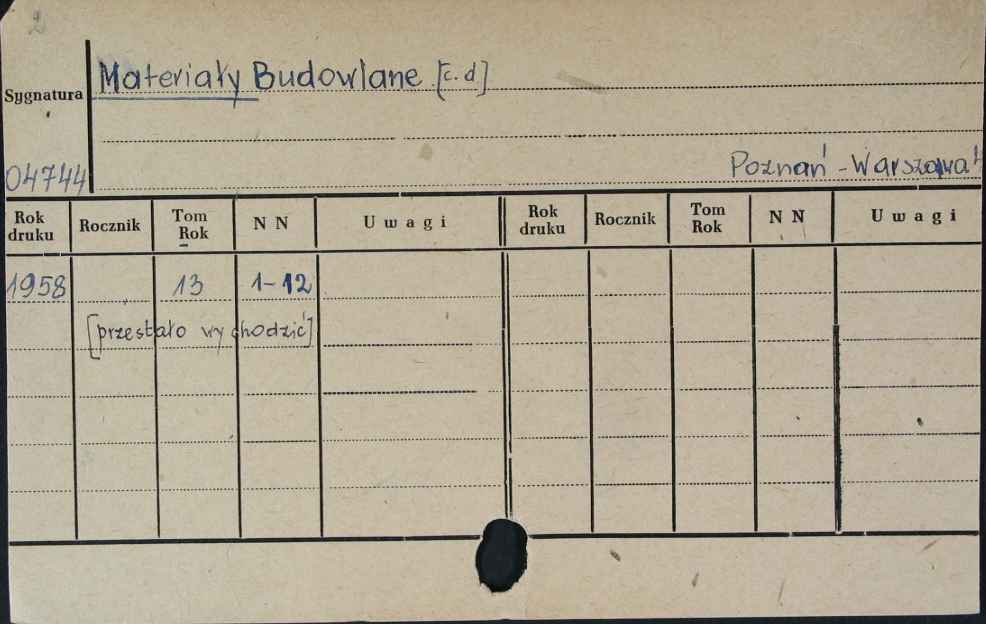 2
Materiały Budowlane [c.d]
Sygnatura
04744
Poznań - Warszawa
Rok druku Rocznik Tom Rok N N Uwagi Rok druku Rocznik Tom Rok N N Uwagi
1958 13 1-12
[przestało wychodzić]